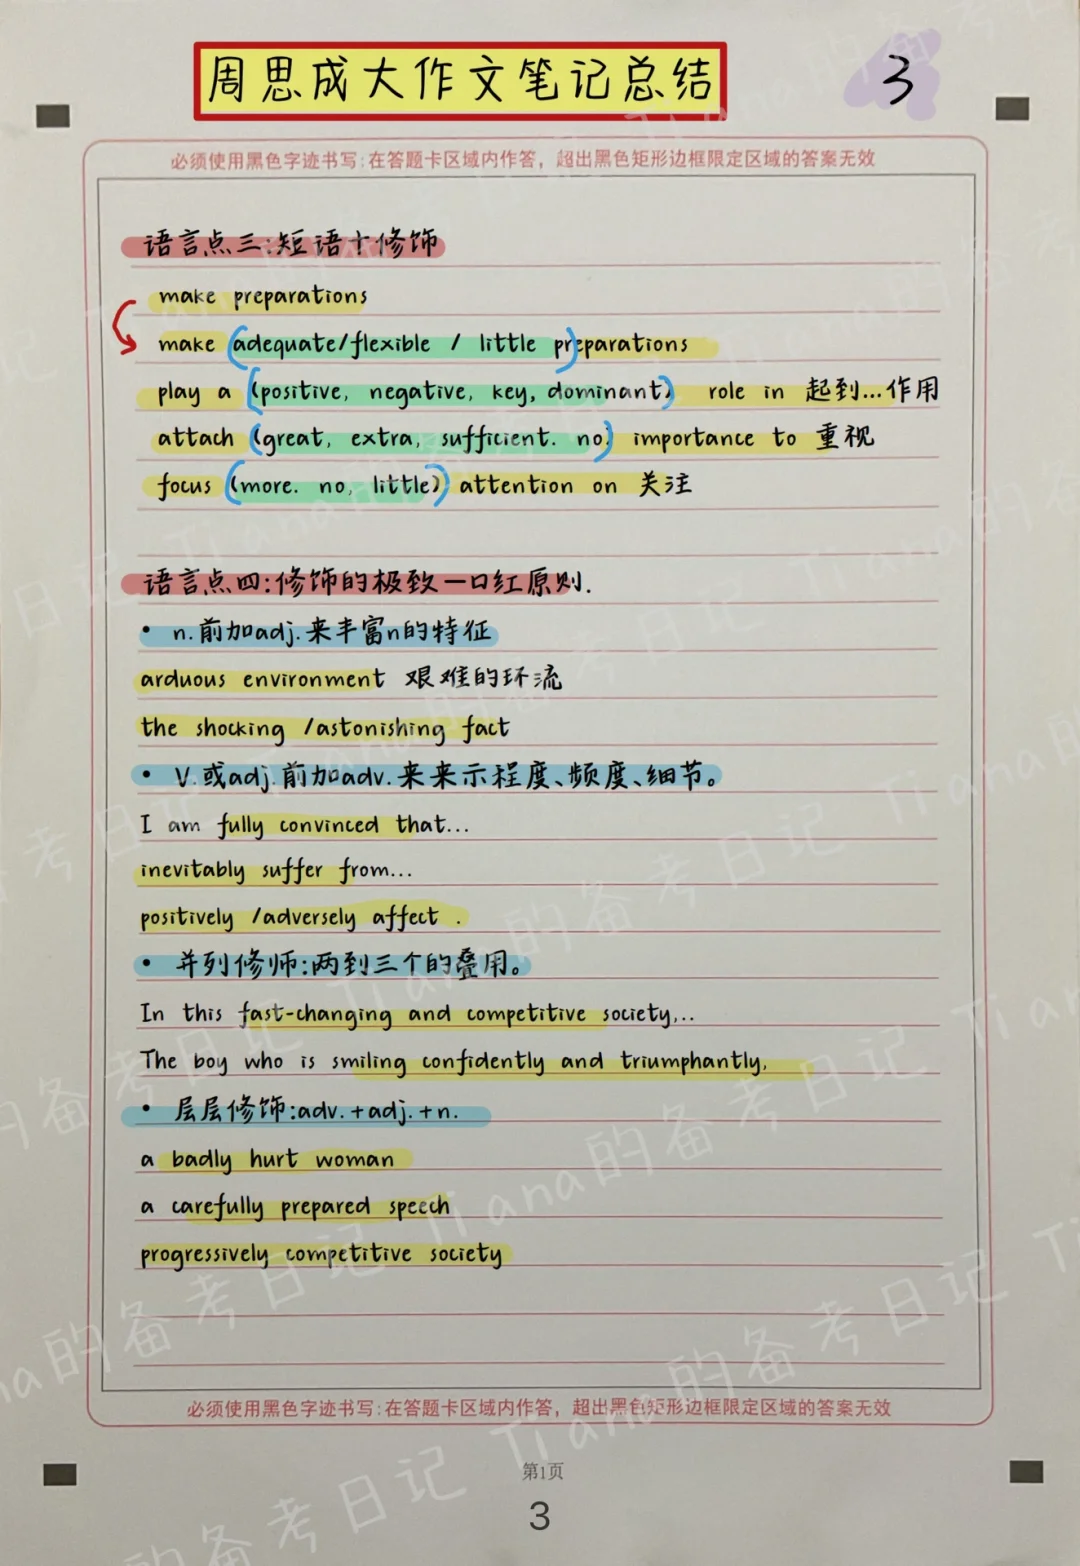 周思成大作文笔记总结
3
必须使用黑色字迹书写:在答题卡区域内作答，超出黑色矩形边框限定区域的答案无效
语言点三:短语+修饰
make preparations
make (adequate/flexible / little preparations)
play a (positive, negative, key, dominant) role in 起到...作用
attach (great, extra, sufficient. no) importance to 重视
focus (more. no, little) attention on 关注
语言点四:修饰的极致一口红原则.
• n.前加adj.来丰富n的特征
arduous environment 艰难的环流
the shocking /astonishing fact
• V.或adj.前加adv.来来示程度、频度、细节。
I am fully convinced that...
inevitably suffer from...
positively /adversely affect .
• 并列修师:两到三个的叠用。
In this fast-changing and competitive society,..
The boy who is smiling confidently and triumphantly,
• 层层修饰:adv.+adj.+n.
a badly hurt woman
a carefully prepared speech
progressively competitive society
必须使用黑色字迹书写:在答题卡区域内作答，超出黑色矩形边框限定区域的答案无效
第1页
3
Tiana的备考日记